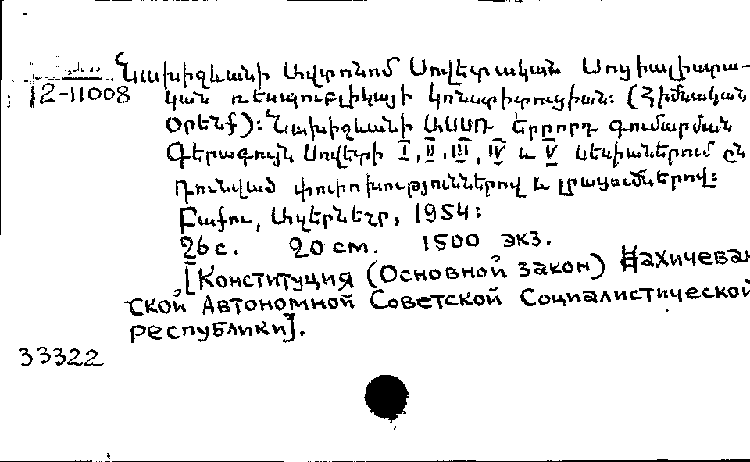 Նախիջևանի Ավտոնոմ Սովետական Սոցիալիստա-
12-11008 կան ռեսպուբլիկայի կոնստիտուցիան։ (Հիմնական
Օրենք)։ Նախիջևանի ԱՍՍՌ Երրորդ գումարման
Գերագույն Սովետի I, II, III, IV և V սեսիաներում ըն
դունված փոփոխություններով և լրացումներով։
Բաքու, Ազերնեշր, 1954։
26 с. 20 cm. 1500 экз.
[Конституция (Основной закон) Нахичеван
ской Автономной Советской Социалистической
республики].
33322